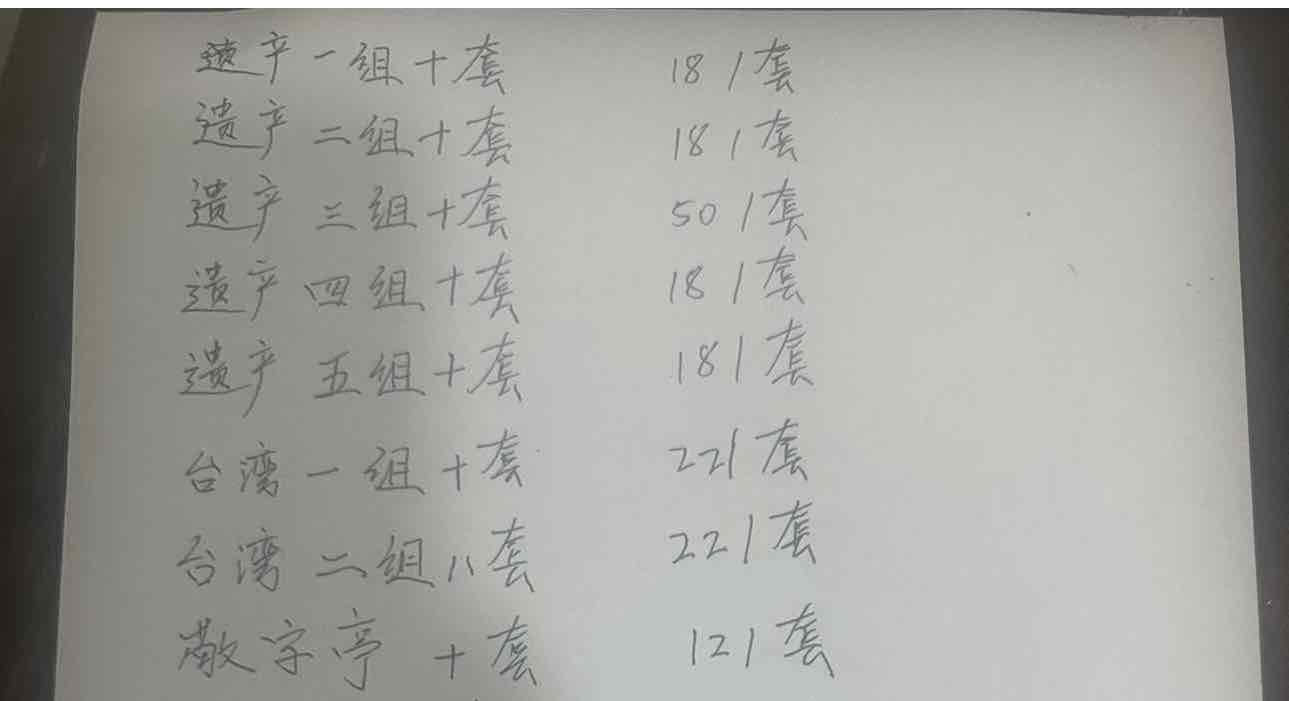 遗产一组十套 18/套
遗产二组十套 18/套
遗产三组十套 50/套
遗产四组十套 18/套
遗产五组十套 18/套
台湾一组十套 22/套
台湾二组八套 22/套
敬字亭 十套 12/套